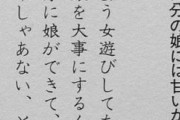 分の娘には甘い
う女遊びして
を大事にする
に娘ができて、
しゃあない、